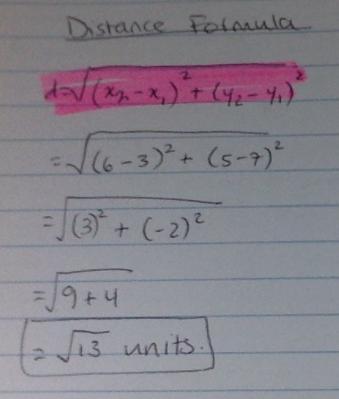 Distance Formula
d=√(x₂-x₁)² + (y₂-y₁)²
=√(6-3)² + (5-7)²
=√(3)² + (-2)²
=√9+4
=√13 units.